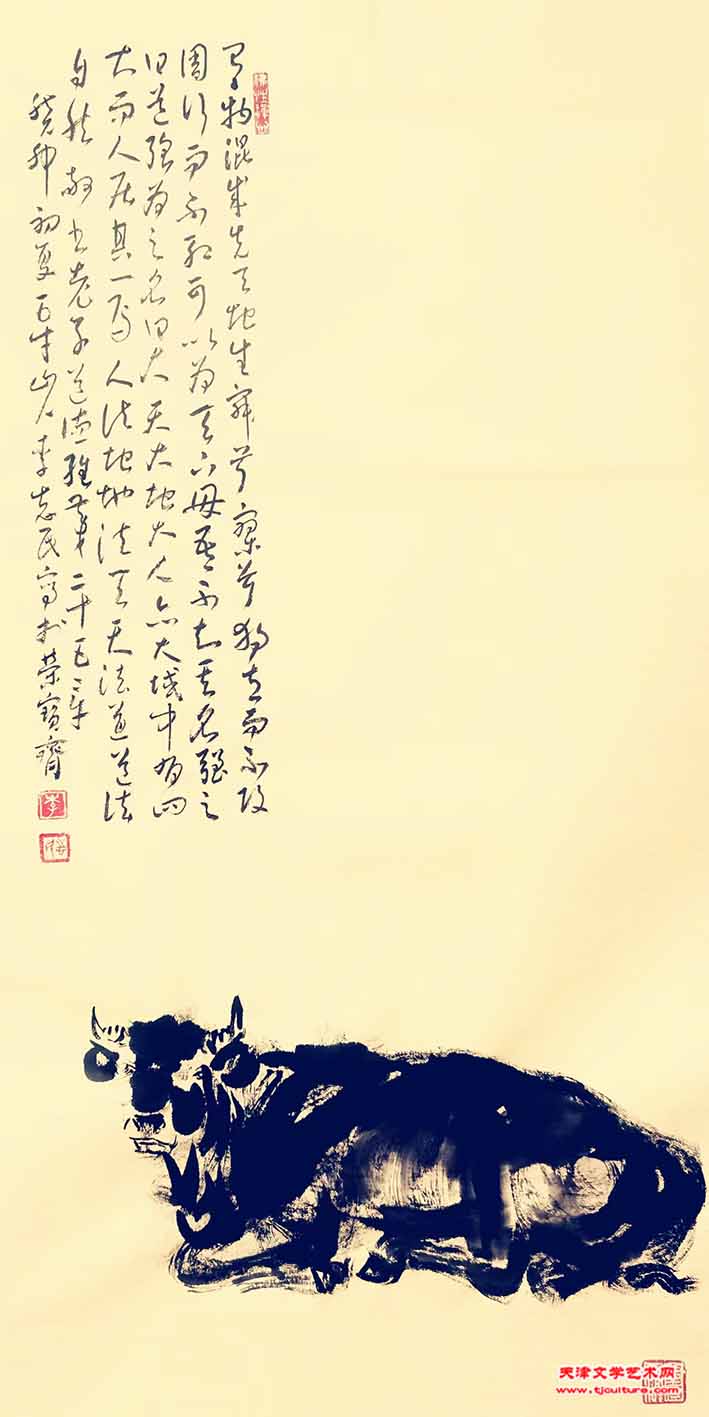 有物混成先天地生寂兮寥兮独立而不改
周行而不殆可以为天下母吾不知其名强之
曰道强为之名曰大天大地大人亦大域中有四
大而人居其一焉人法地地法天天法道道法
自然 敬书老子道德经第二十五章
癸卯初夏百牛山人李志民写于荣宝斋
李
天津文学艺术网
www.tjculture.com